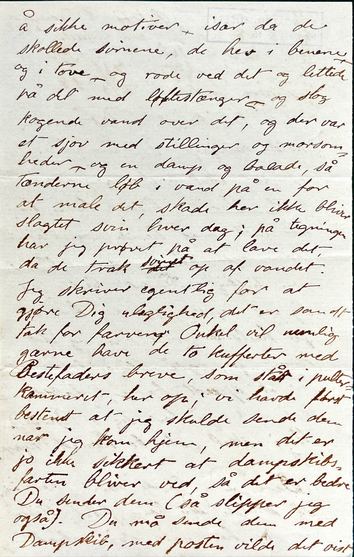 Å sikke motiver – især da de
skollede svinene, de hev i benene –
og i tove – og rode ved det og lettede
på det med løftestænger – og slog
kogende vand over det, og der var
et sjov med stillinger og morsom-
heder – og en damp og balade, så
tænderne løb i vand på en for
at male det, skade her ikke bliver
slagtet svin hver dag; på tegninger
har jeg prøvet på at lave det,
da de trak svinet op af vandet
Jeg skriver egentlig for at
gøre Dig ulejlighed, det er sandt
tak for farven; Onkel vil nemlig
gærne have de to kufferter med
Bestefaders breve, som står i pulter-
kammeret, her op; vi havde først
bestemt at jeg skulde sende dem
når jeg kom hjem, men det er
jo ikke sikkert at dampskibs-
farten bliver ved, så det er bedre
Du sender dem (så slipper jeg
også). Du må sende dem med
Dampskib, med posten vilde det vist